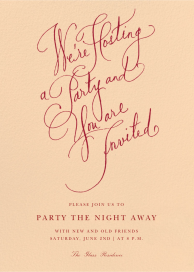 We're Hosting
a Party and
You are
Invited
PLEASE JOIN US TO
PARTY THE NIGHT AWAY
WITH NEW AND OLD FRIENDS
SATURDAY, JUNE 2ND | AT 8 P.M.
The Bless Residence